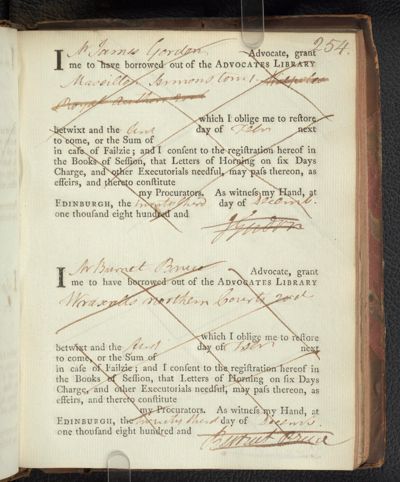 254.
I Mr James Gordon Advocate, grant
me to have borrowed out of the ADVOCATES LIBRARY
Massillon Sermons
which I oblige me to restore
betwixt and the first day of Febr next
to come, or the Sum of
in case of Failzie; and I consent to the registration hereof in
the Books of Session, that Letters of Horning on six Days
Charge, and other Executorials needful, may pass thereon, as
effeirs, and thereto constitute
my Procurators. As witness my Hand, at
EDINBURGH, the twenty third day of Decemb.
one thousand eight hundred and
J Gordon
I Mr Burnet Bruce Advocate, grant
me to have borrowed out of the ADVOCATES LIBRARY
Wraxall's northern Courts 2 vol
which I oblige me to restore
betwixt and the first day of Febr next
to come, or the Sum of
in case of Failzie; and I consent to the registration hereof in
the Books of Session, that Letters of Horning on six Days
Charge, and other Executorials needful, may pass thereon, as
effeirs, and thereto constitute
my Procurators. As witness my Hand, at
EDINBURGH, the twenty third day of Decemb.
one thousand eight hundred and
Burnet Bruce